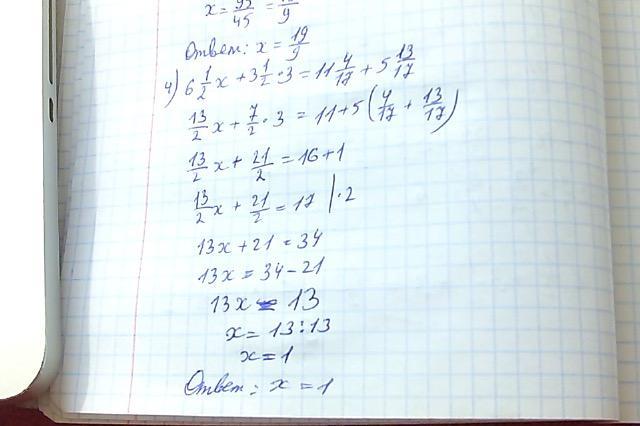 x = 95/45 = 19/9
Ответ: x = 19/9
4) 6 1/2 x + 3 1/2 · 3 = 11 4/17 + 5 13/17
13/2 x + 7/2 · 3 = 11 + 5 (4/17 + 13/17)
13/2 x + 21/2 = 16 + 1
13/2 x + 21/2 = 17 | · 2
13x + 21 = 34
13x = 34 - 21
13x = 13
x = 13 : 13
x = 1
Ответ: x = 1